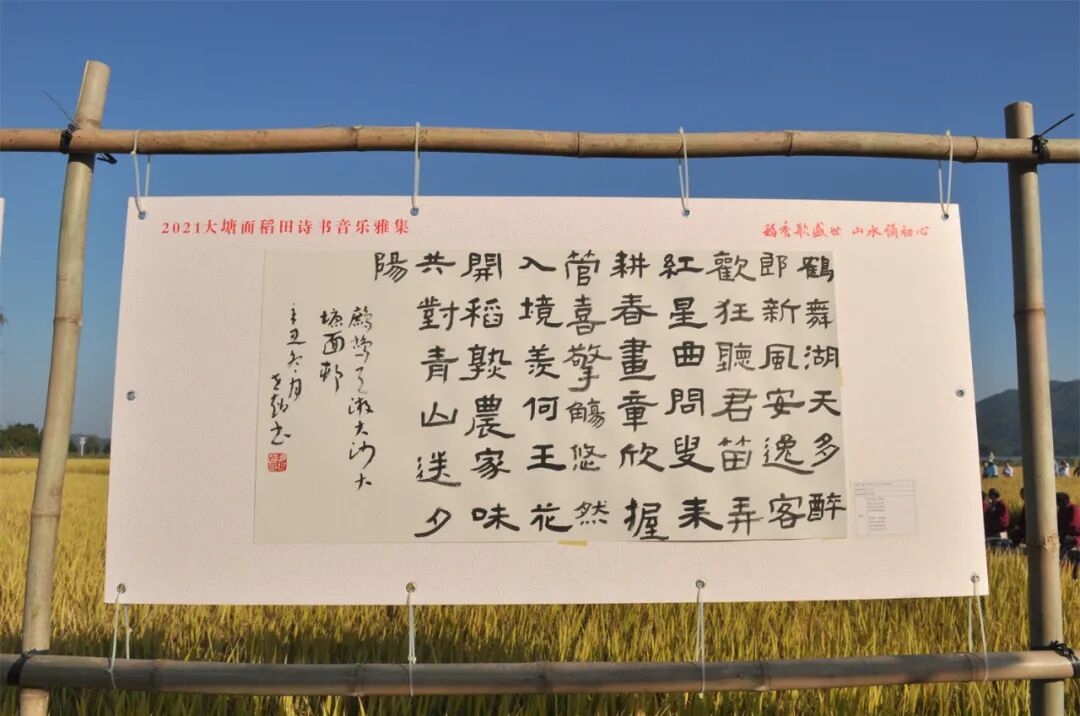 2021大塘面稻田诗书音乐雅集
稻香歌盛世 山水诵初心
鶴舞湖天多醉
郎新風安逸客
歡狂聽君笛弄
紅星曲問叟来
耕春畫童欣握
管喜擎觴悠然
入境羨何王花
開稻熟農家味
共對青山送夕
陽
鷓鴣天 游大沙大
塘面邨
辛丑冬月
書